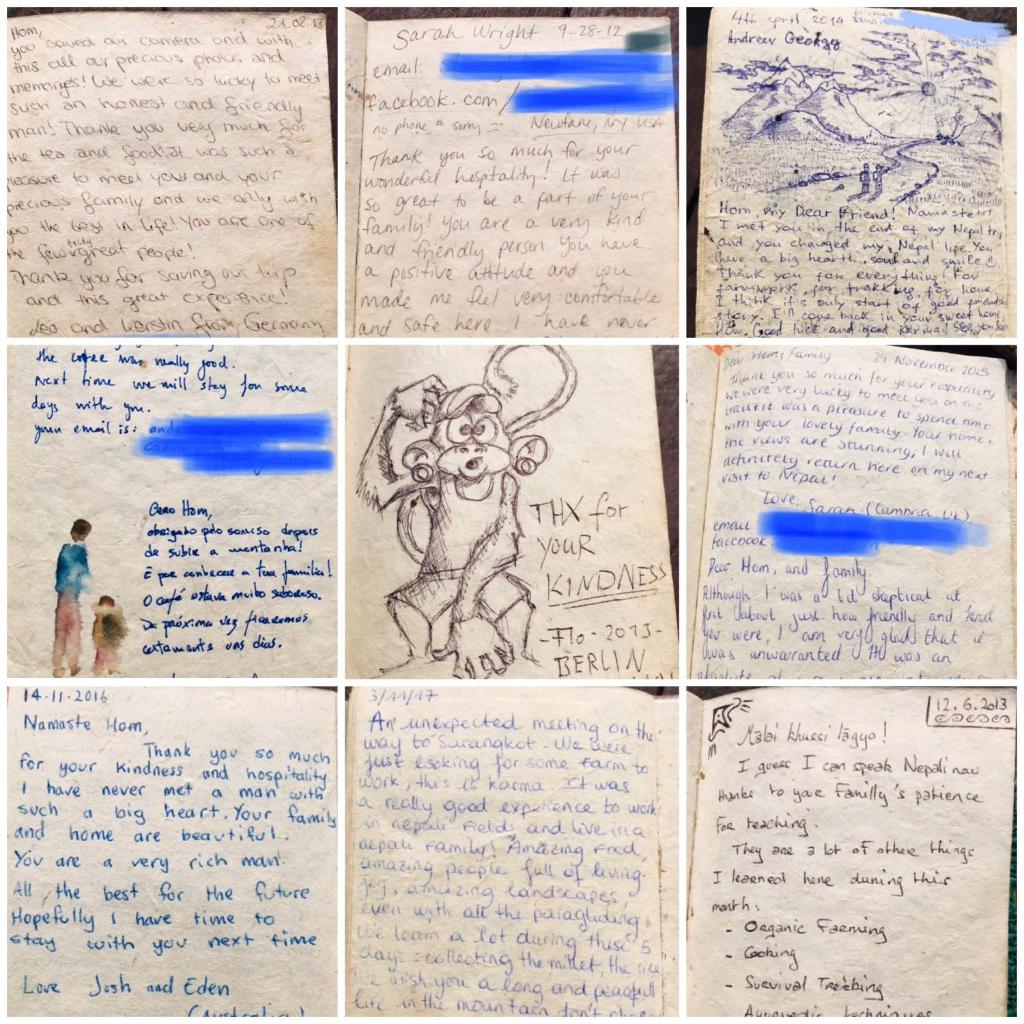 21.02.13
Hom,
you saved our camera and with
this all our precious photos and
memories! We were so lucky to meet
such an honest and friendly
man! Thank you very much for
the tea and food! It was such a
pleasure to meet you and your
precious family and we only wish
you the best in life! You are one of
the few truly great people!
Thank you for saving our trip
and this great experience!
and Kerstin from Germany
Sarah Wright 9-28-12
email:
facebook.com/
no phone # sorry Newfane, NY USA
Thank you so much for your
wonderful hospitality! It was
so great to be a part of your
family! You are a very kind
and friendly person. You have
a positive attitude and you
made me feel very comfortable
and safe here. I have never
4th april 2014
Andreev Georgy
Hom, my Dear Friend! Namaste!!!
I met you in the end of my Nepal trip
and you changed my Nepal life. You
have a big hearth, soul and smile
Thank you for everything! For
farmwork, for trekking, for home.
I think it's only start of good friends
story. I'll come back in your sweet home
Hom. Good luck and good karma! See you soon
the coffee was really good.
Next time we will stay for some
days with you.
your email is:
Caro Hom,
obrigado pelo sorriso depois
de subir a montanha!
E por conhecer a tua família!
O café estava muito saboroso.
Da próxima vez ficaremos
certamente uns dias.
THX for
YOUR
KINDNESS
-Flo-2013-
BERLIN
Dear Hom, Family 24 November 2015
Thank you so much for your hospitality
we were very lucky to meet you on our
it was a pleasure to spend time
with your lovely family. Your home,
the views are stunning, I will
definitely return here on my next
visit to Nepal!
Love, Sarah (Cumbria, UK)
email
facebook
Dear Hom, and family,
Although I was a bit skeptical at
first about just how friendly and kind
you were, I am very glad that it
was unwarranted. It was an
absolute
14.11.2016
Namaste Hom,
Thank you so much
for your kindness and hospitality
I have never met a man with
such a big heart. Your family
and home are beautiful.
You are a very rich man!
All the best for the future
Hopefully I have time to
stay with you next time
Love Josh and Eden
(Australia)
3/11/17
An unexpected meeting on the
way to Sarangkot. We were
just looking for some farm to
work, this is karma. It was
a really good experience to work
in nepali fields and live in a
nepali family! Amazing food,
amazing people full of living
joy, amazing landscapes,
even with all the paragliding
We learn a lot during these 5
days: collecting the millet, the rice
We wish you a long and peacefull
life in the mountain don't change
12.6.2013
Malai khussi lāgyo!
I guess I can speak Nepali now
thanks to your Familly's patience
for teaching.
They are a lot of other things
I learned here during this
month:
- Organic Farming
- Cooking
- Survival Trecking
- Ayurvedic techniques